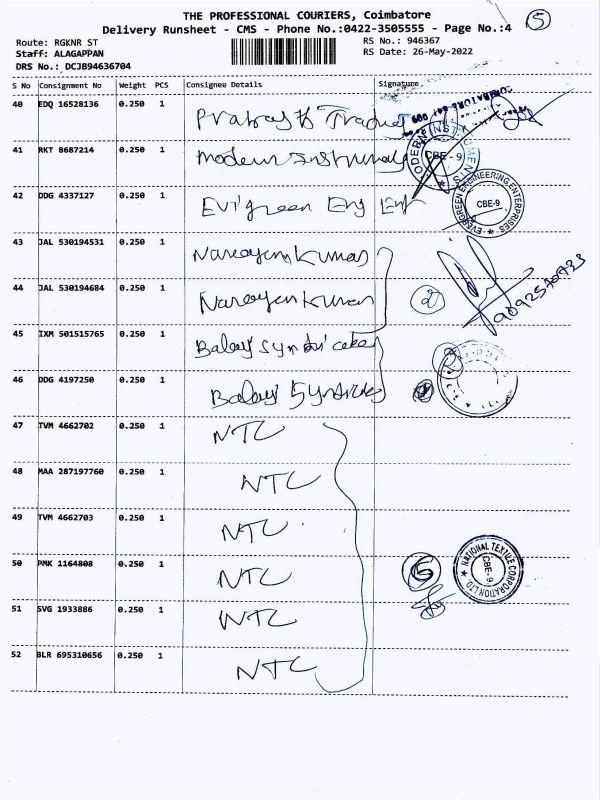 THE PROFESSIONAL COURIERS, Coimbatore
Delivery Runsheet - CMS - Phone No.:0422-3505555 - Page No.:4
5
Route: RGKNR ST
RS No.: 946367
Staff: ALAGAPPAN
RS Date: 26-May-2022
DRS No.: DCJB94636704
S No Consignment No Weight PCS Consignee Details Signature
40 EDQ 16528136 0.250 1
41 RKT 8687214 0.250 1 Modern
MODERN INSTRUMENTS CBE-9
42 DDG 4337127 0.250 1 Evigreen Eng Ent
EVERGREEN ENGINEERING ENTERPRISES CBE-9
43 JAL 530194531 0.250 1 Narayenkumar
44 JAL 530194684 0.250 1 Narayenkumar 2
45 IXM 501515765 0.250 1 Balaji
46 DDG 4197250 0.250 1 Balaji
47 TVM 4662702 0.250 1 NTC
48 MAA 287197760 0.250 1 NTC
49 TVM 4662703 0.250 1 NTC
50 PMK 1164808 0.250 1 NTC
NATIONAL TEXTILE CORPORATION LTD CBE-9
51 SVG 1933886 0.250 1 NTC
52 BLR 695310656 0.250 1 NTC